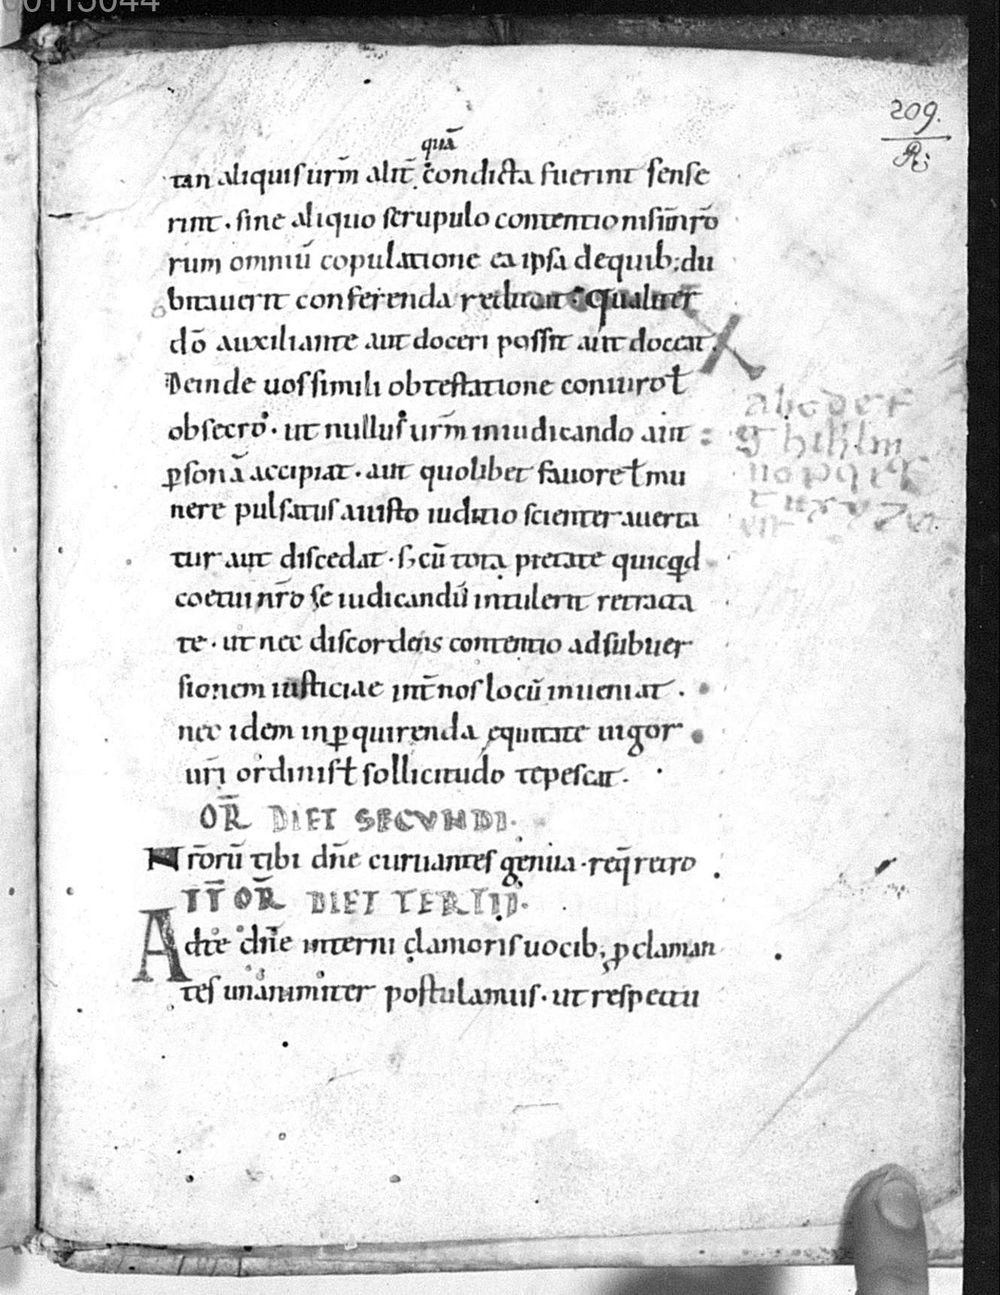 00115044
209.
R;
quā
tan aliquis urm̄ alit̄ condicta fuerint sense
rint · sine aliquo scrupulo contentionis im̄ ir̄o
rum omniū copulatione ea ipsa de quib; du
bitauerit conferenda reducat · Qualiter
dō auxiliante aut doceri possit aut doceat.
Deinde uos simili obtestatione coniuro ł
obsecro · ut nullus urm̄ in iudicando aut
p̱sonā accipiat · aut quolibet fauore ł mu
nere pulsatus a uisto iuditio scienter auerta
tur aut discedat · s; cū tota pietate quicq̱d
coetui nr̄o se iudicandū intulerit retracta
te · ut nec discordans contentio ad subuer
sionem iusticiae int̄ nos locū inueniat .
nec idem in p̱quirenda ęquitate uigor
ur̄i ordinis ł sollicitudo tepescat.
OR̄ DIEI SECVNDI.
Nr̄orū tibi dn̄e curuantes genua · req̄ retro
IT̄ OR̄ DIEI TERTII.
Ad te dn̄e interni clamoris uocib; p̱claman
tes unanimiter postulamus · ut respectu
abcdef
ghiklm
nopqrſ
tuxyz